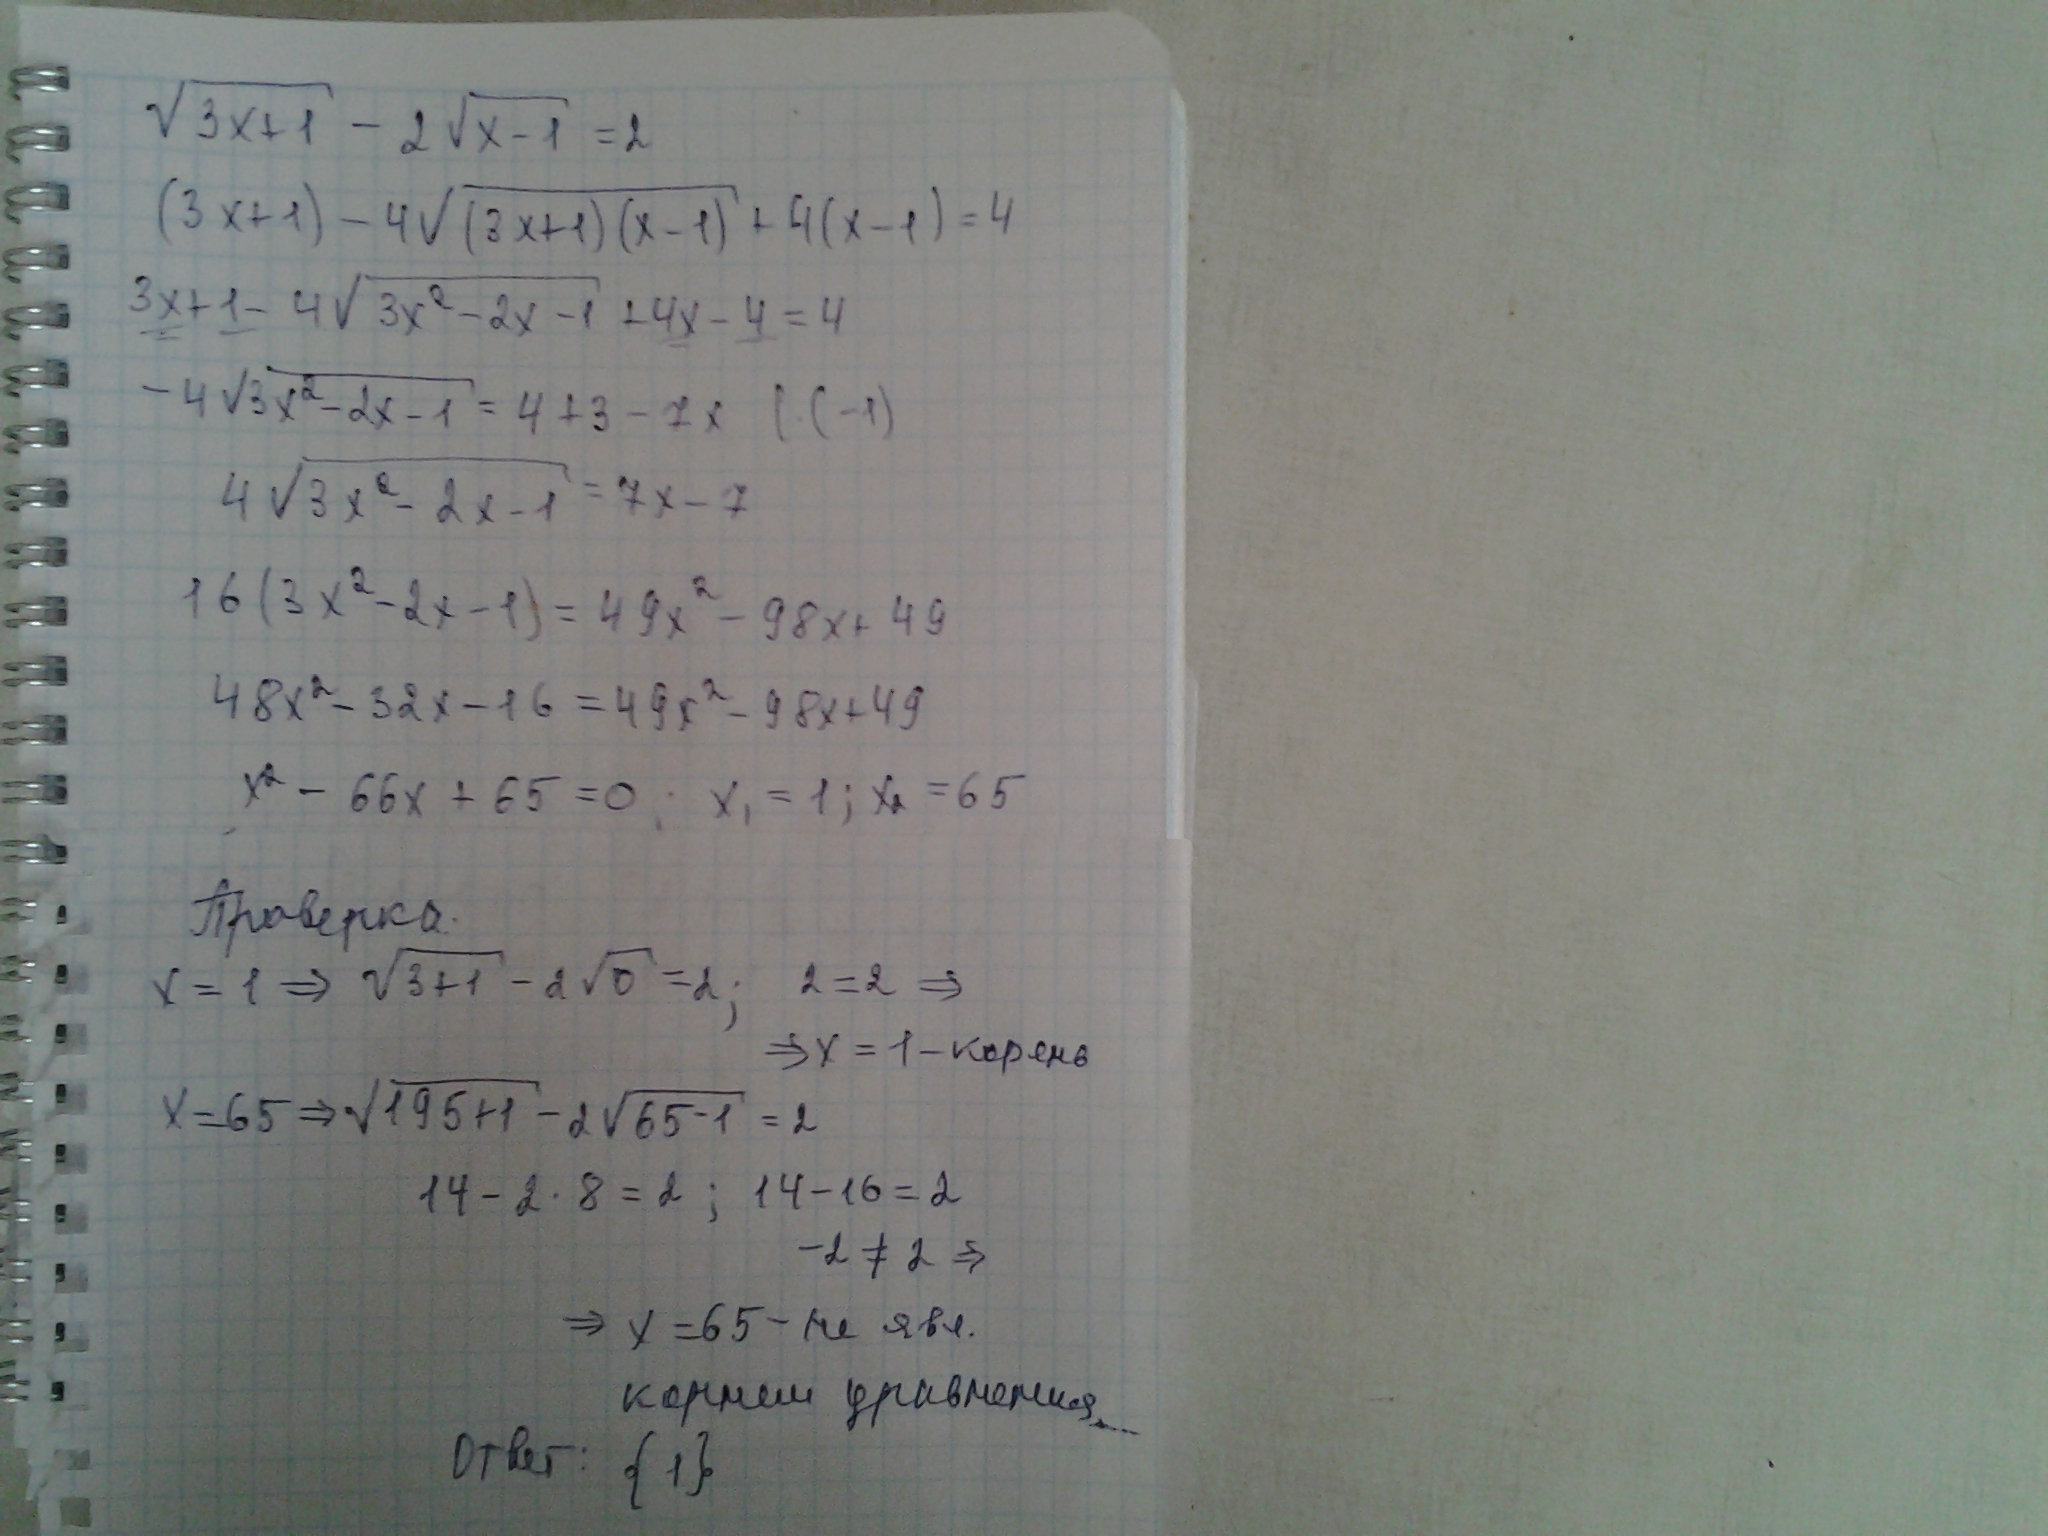 √(3x+1) - 2√(x-1) = 2
(3x+1) - 4√((3x+1)(x-1)) + 4(x-1) = 4
3x+1 - 4√(3x²-2x-1) + 4x - 4 = 4
-4√(3x²-2x-1) = 4+3-7x (·(-1)
4√(3x²-2x-1) = 7x-7
16(3x²-2x-1) = 49x²-98x+49
48x²-32x-16 = 49x²-98x+49
x²-66x+65=0; x₁=1; x₂=65
Проверка.
x=1 ⇒ √(3+1) - 2√0 = 2; 2=2 ⇒
⇒ x=1 - корень
x=65 ⇒ √(195+1) - 2√(65-1) = 2
14-2·8=2; 14-16=2
-2≠2 ⇒
⇒ x=65 - не явл.
корнем уравнения
Ответ: {1}